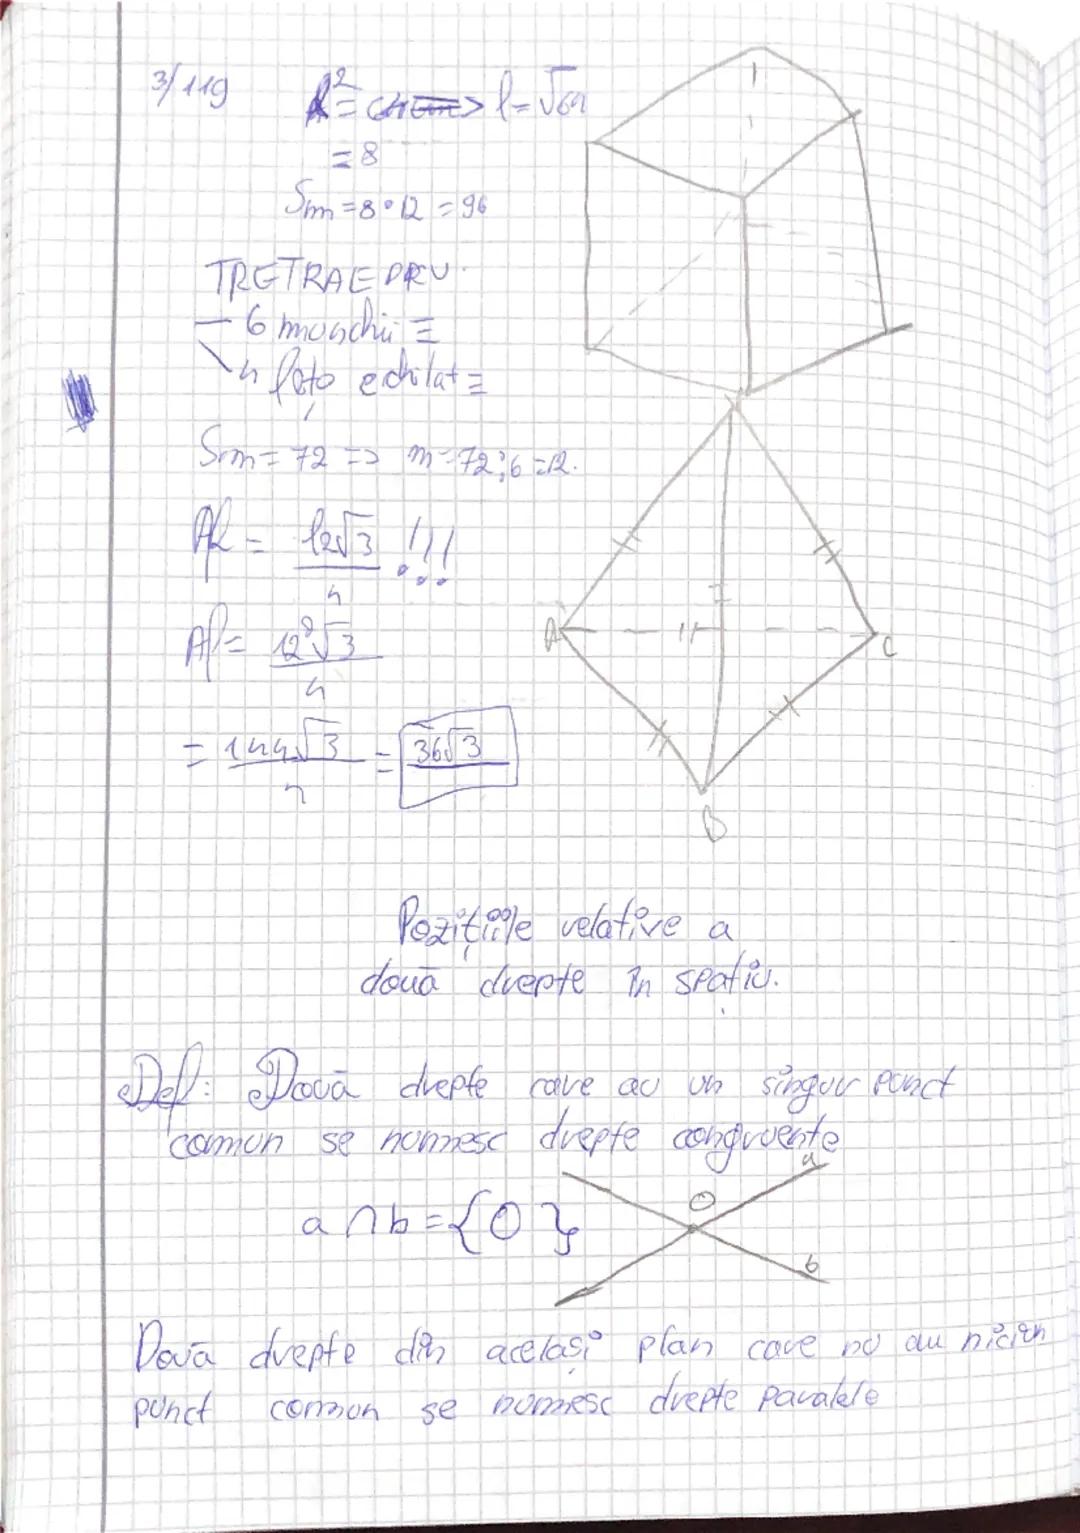 3/119
l² = 64 => l = √64
= 8
Sm = 8 · 12 = 96
TRETRAEDRU
– 6 muchii ≡
4 fețe echilat ≡
Sm = 72 => m = 72:6 = 12.
Af = l2√3 / 4 !!!
Af = 12²√3 / 4
= 144√3 / 4 = 36√3
V
A
C
B
Pozițiile relative a
două drepte în spațiu.
Def: Două drepte care au un singur punct
comun se numesc drepte congruente
a ∩ b = {O}
a
O
b
Două drepte din același plan care nu au niciun
punct comun se numesc drepte paralele